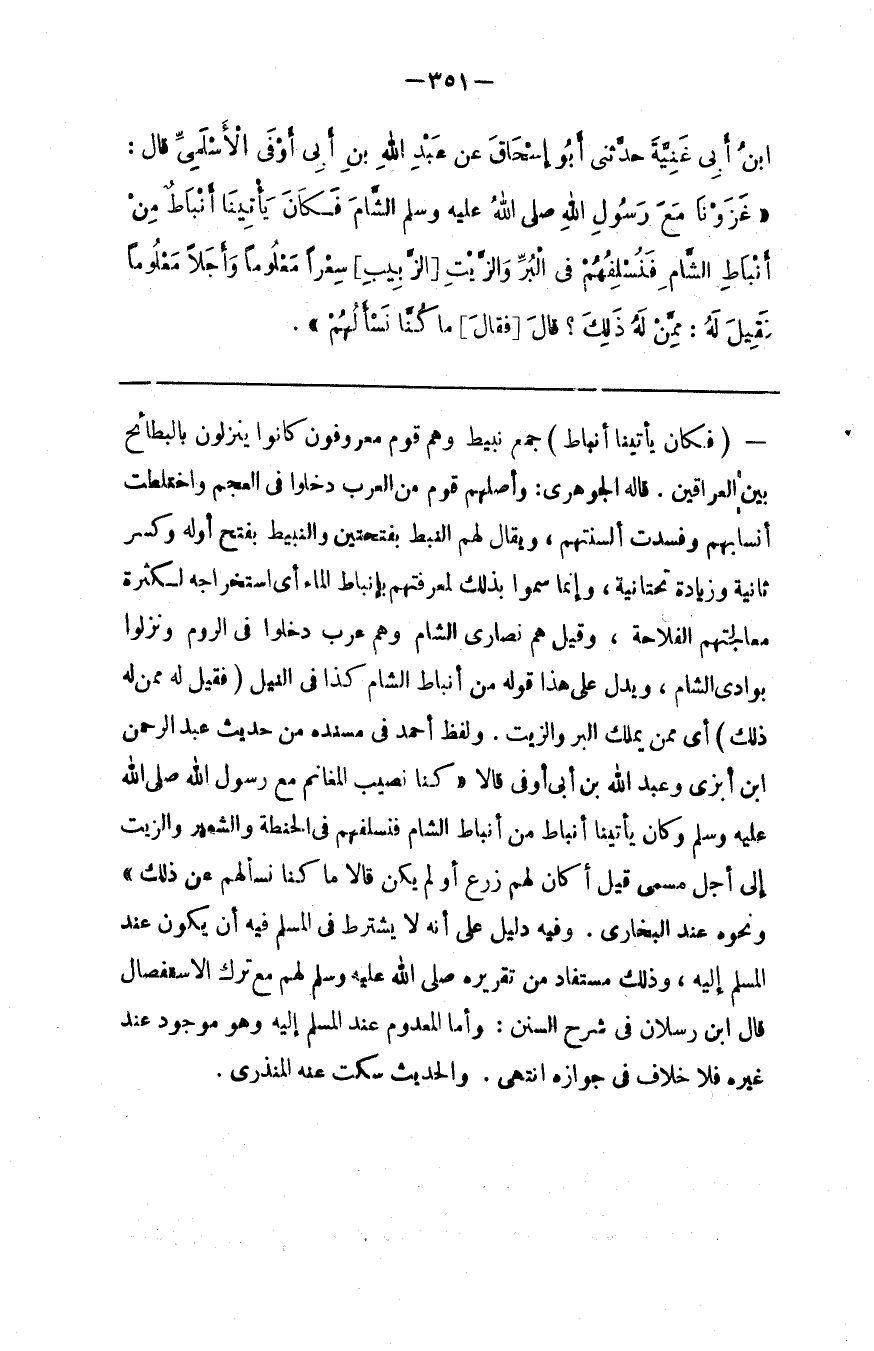 — ٣٥١ —
ابنُ أَبِى غَنِيَّةَ حدَّثنى أَبُو إِسْحَاقَ عن عَبْدِ اللهِ بنِ أَبِى أَوْفَى الْأَسْلَمِىِّ قال :
« غَزَوْنَا مَعَ رَسُولِ اللهِ صلى اللهُ عليه وسلم الشَّامَ فَكَانَ يَأْتِينَا أَنْبَاطٌ مِنْ
أَنْبَاطِ الشَّامِ فَنُسْلِفُهُمْ فى الْبُرِّ وَالزَّيْتِ [الزَّبِيبِ] سِعْراً مَعْلُوماً وَأَجَلاً مَعْلُوماً
فَقِيلَ لَهُ : مِمَّنْ لَهُ ذَلِكَ ؟ قالَ [فقالَ] ما كُنَّا نَسْأَلُهُمْ » .
— ( فكان يأتينا أنباط ) جمع نبيط وهم قوم معروفون كانوا ينزلون بالبطائح
بين العراقين . قاله الجوهرى: وأصلهم قوم من العرب دخلوا فى العجم واختلطت
أنسابهم وفسدت ألسنتهم ، ويقال لهم النبط بفتحتين والنبيط بفتح أوله وكسر
ثانية وزيادة تحتانية ، وإنما سموا بذلك لمعرفتهم بإنباط الماء أى استخراجه لكثرة
معالجتهم الفلاحة ، وقيل هم نصارى الشام وهم عرب دخلوا فى الروم ونزلوا
بوادى الشام ، ويدل على هذا قوله من أنباط الشام كذا فى النيل ( فقيل له ممن له
ذلك ) أى ممن يملك البر والزيت . ولفظ أحمد فى مسنده من حديث عبد الرحمن
ابن أبزى وعبد الله بن أبى أوفى قالا « كنا نصيب المغانم مع رسول الله صلى الله
عليه وسلم وكان يأتينا أنباط من أنباط الشام فنسلفهم فى الحنطة والشعير والزيت
إلى أجل مسمى قيل أكان لهم زرع أو لم يكن قالا ما كنا نسألهم عن ذلك »
ونحوه عند البخارى . وفيه دليل على أنه لا يشترط فى المسلم فيه أن يكون عند
المسلم إليه ، وذلك مستفاد من تقريره صلى الله عليه وسلم لهم مع ترك الاستفصال
قال ابن رسلان فى شرح السنن : وأما المعدوم عند المسلم إليه وهو موجود عند
غيره فلا خلاف فى جوازه انتهى . والحديث سكت عنه المنذرى .